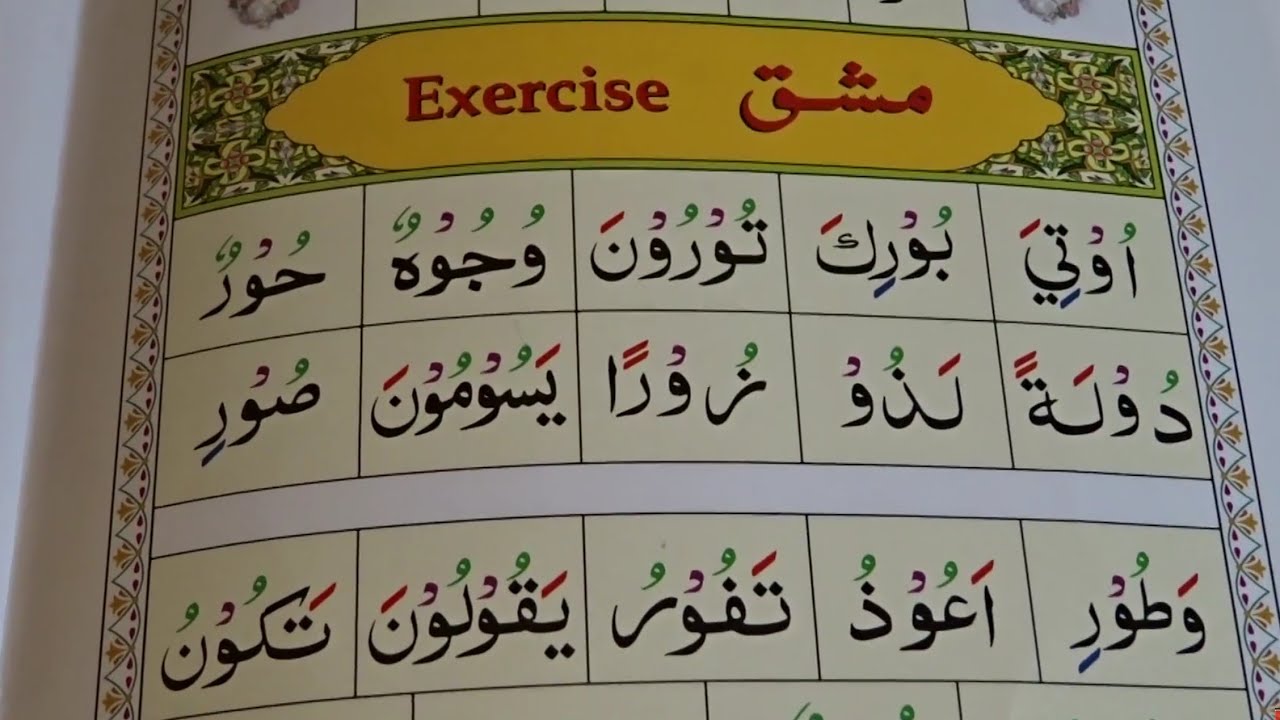 Exercise مشق
اُوْتِيَ بُوْرِكَ تُوْرُوْنَ وُجُوْهٌ حُوْرٌ
دُوْلَةً لَذُوْ زُوْرًا يَسُوْمُوْنَ صُوْرِ
وَطُوْرِ اَعُوْذُ تَفُوْرُ يَقُوْلُوْنَ تَكُوْنُ